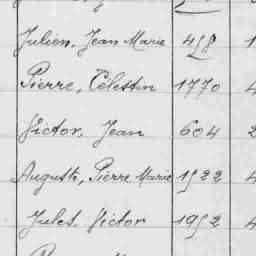 Julien, Jean Marie 458 1
Pierre, Célestin 1770 4
Victor, Jean 604 2
Auguste, Pierre Marie 1522 4
Jules, Victor 1952 4